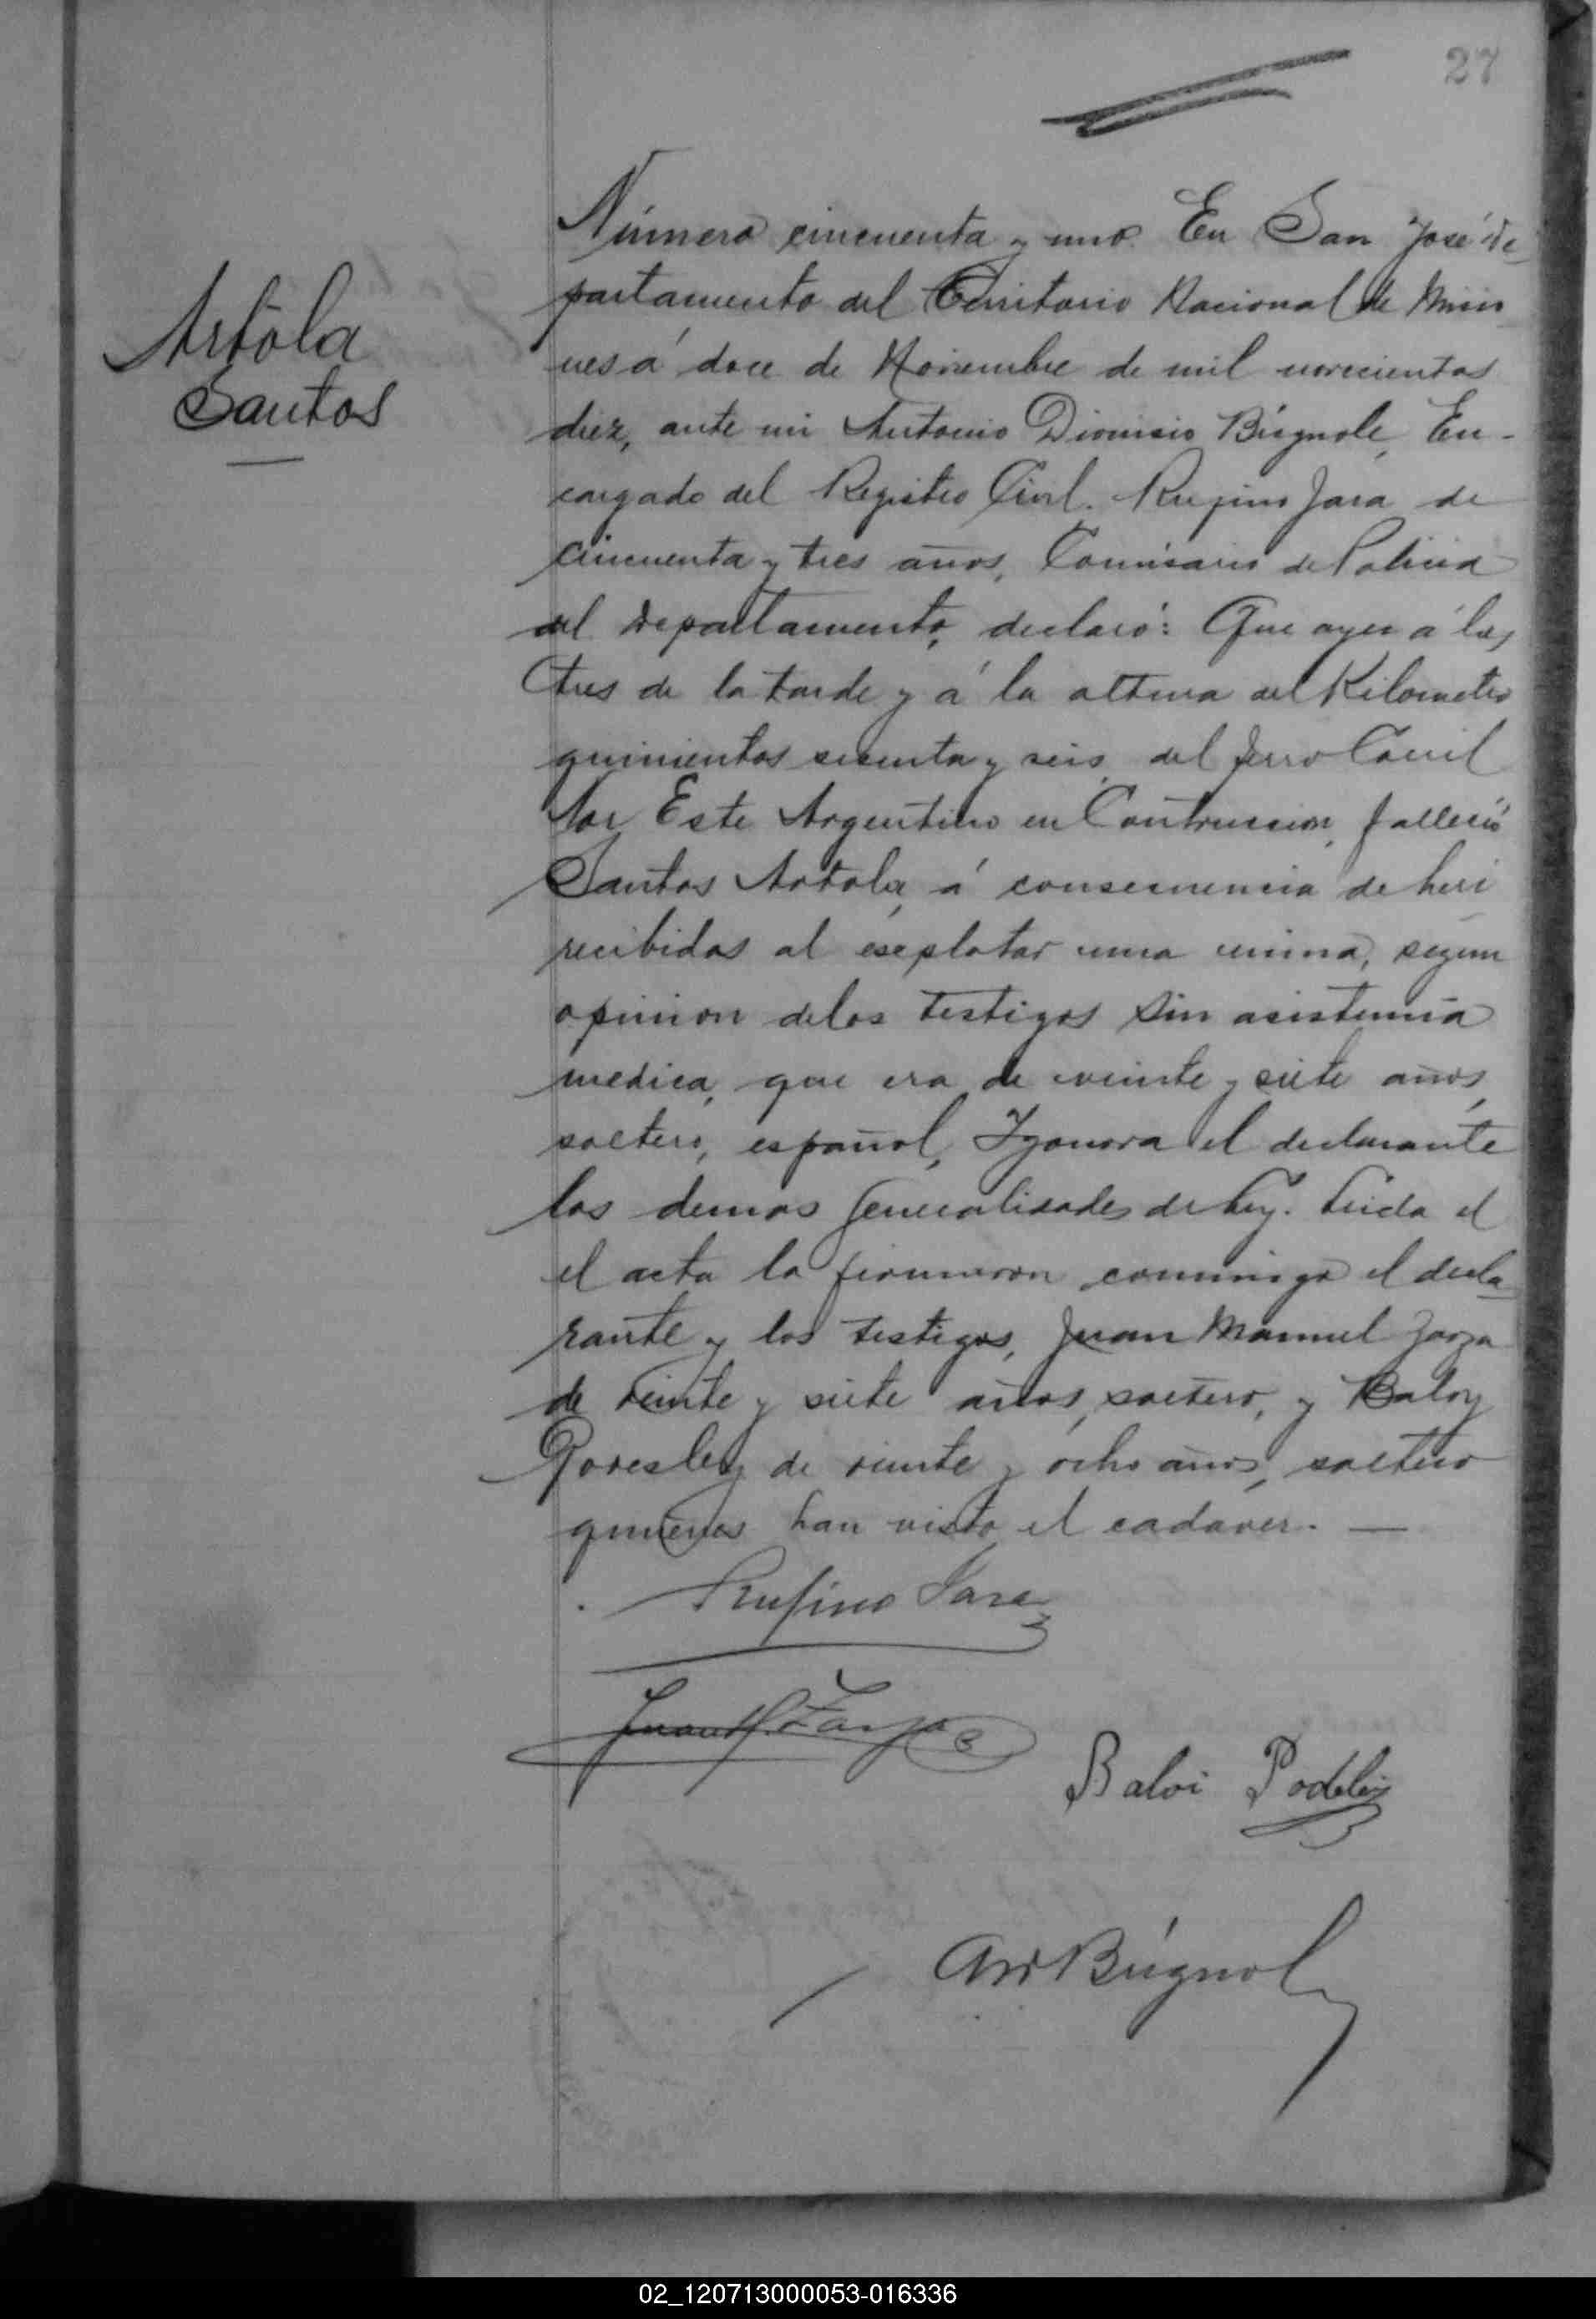 27
Artola
Santos
Número cincuenta y uno. En San José de
partamento del Territorio Nacional de Misio
nes á doce de Noviembre de mil novecientos
diez, ante mi Antonio Dionisio Búgnole, En-
cargado del Registro Civil. Rufino Jara de
cincuenta y tres años, Comisario de Policia
del Departamento, declaró: Que ayer á las
tres de la tarde y á la altura del Kilometro
quinientos sesenta y seis del ferro Carril
Nor Este Argentino en Contruccion, falleció
Santos Artola, á consecuencia de heri
recibidas al esesplotar una mina, segun
opinion de los testigos sin asistencia
medica, que era de veinte y siete años,
soltero, español, Ygonora el declarante
las demas Generalidades de ley. Leida el
el acta la firmaron conmigo el decla
rante y los testigos, Juan Manuel Zarza
de veinte y siete años, soltero, y Baloy
de veinte y ocho años, soltero
quienes han visto el cadaver. —
Rufino Jara
Juan M. Zarza
Baloi
Búgnol
02_120713000053-016336